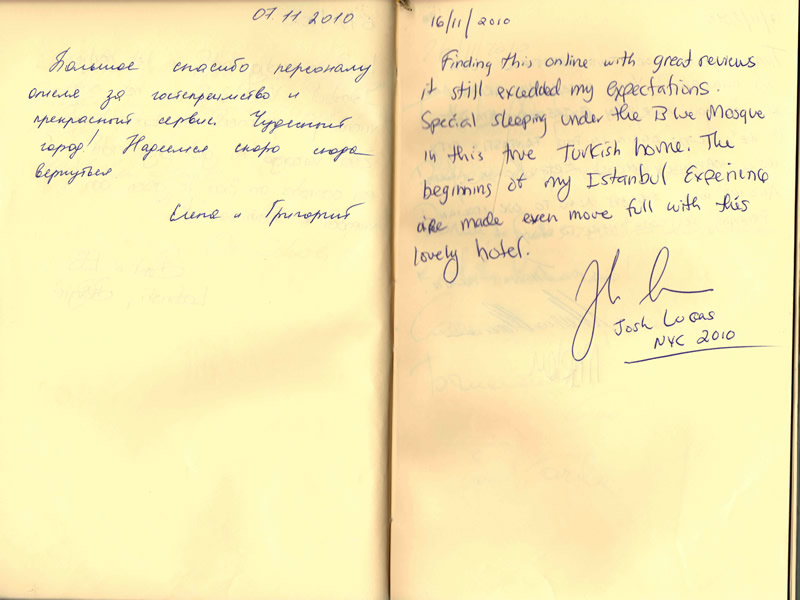 07.11.2010
Большое спасибо персоналу
отеля за гостеприимство и
прекрасный сервис. Чудесный
город! Надеемся скоро сюда
вернуться
Елена и Григорий
16/11/2010
Finding this online with great reviews
it still excedded my expectations.
Special sleeping under the Blue Mosque
in this true Turkish home. The
beginnings of my Istanbul Experience
are made even more full with this
lovely hotel.
Josh Lucas
NYC 2010